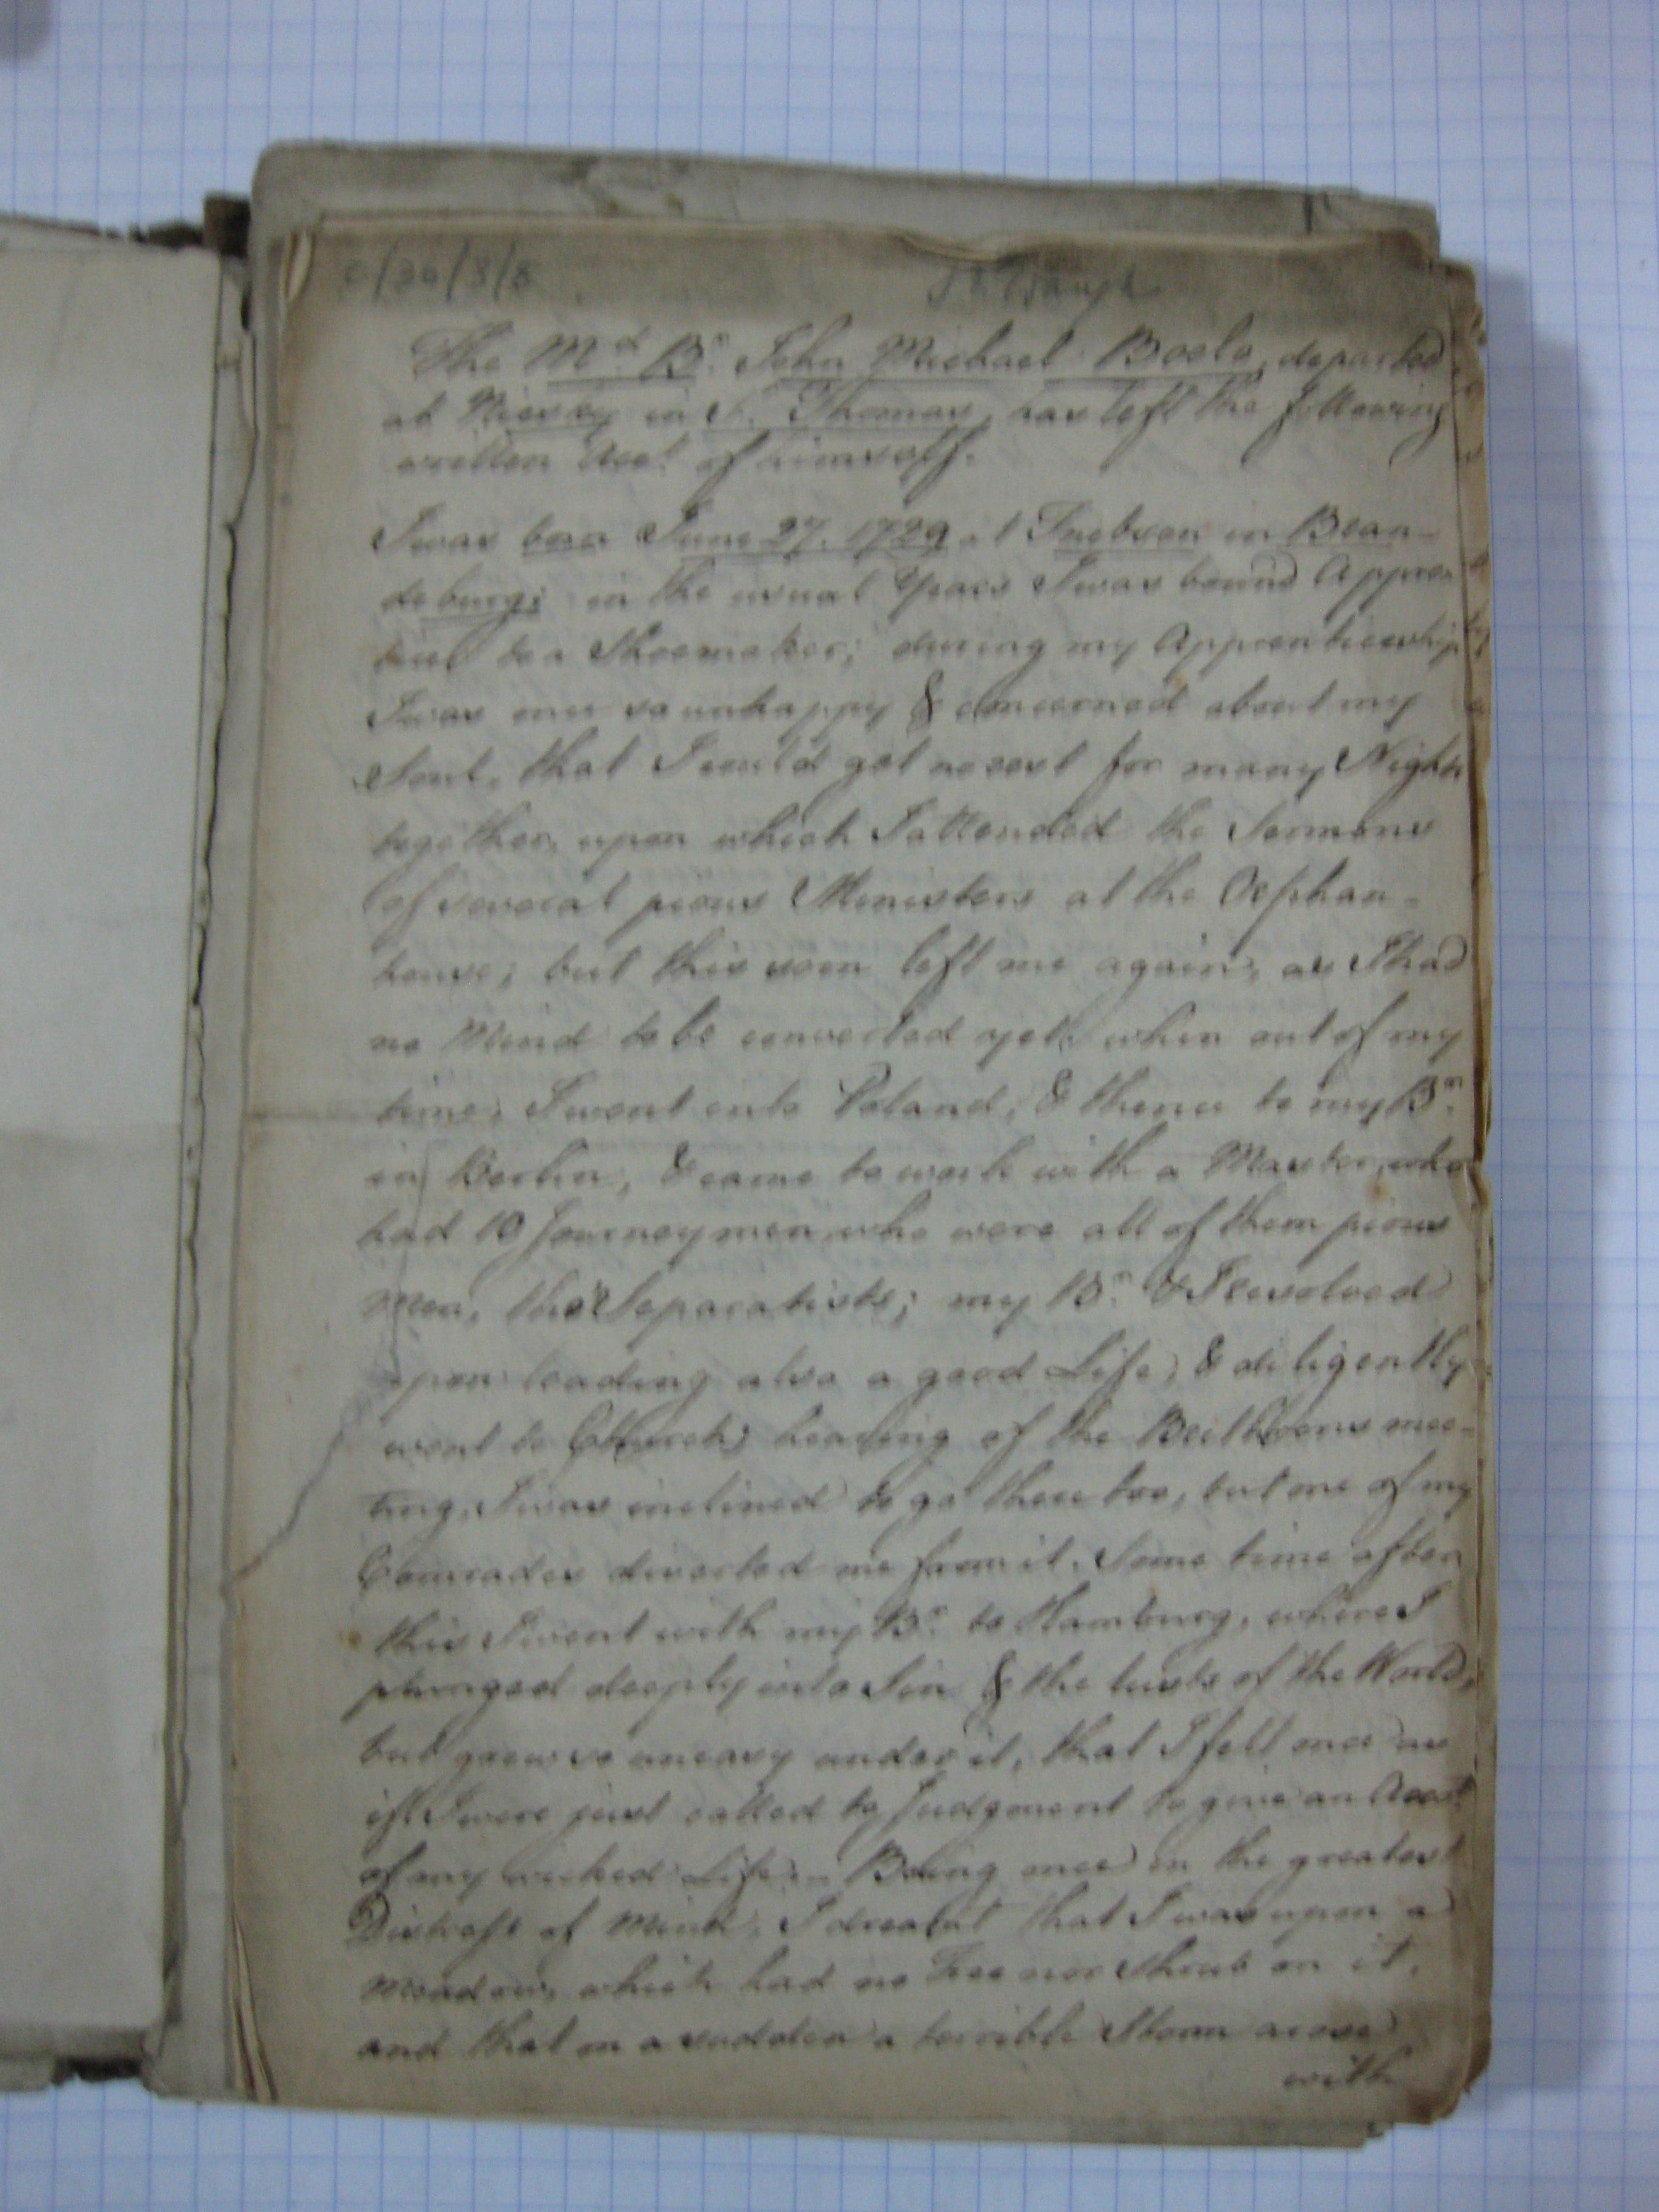 C/36/3/8
The Md. Br. John Michael Boele, departed
at Niesky in St. Thomas, has left the following
written Acct. of himself.
I was born June 27. 1729 at in Bran-
deburg; in the usual Years I was bound Appren
tice to a Shoemaker; during my Apprenticeship
I was once so unhappy & concerned about my
Soul, that I could get no rest for many Nights
together, upon which I attended the Sermons
of several pious Ministers at the Orphan-
house; but this soon left me again, as I had
no Mind to be converted yet. when out of my
time, I went into Poland, & thence to my Br.
in Berlin, & came to work with a Master, who
had 10 Journeymen, who were all of them pious
Men, tho' Separatists; my Br. & I resolved
upon leading also a good Life, & diligently
went to Church; hearing of the Brethrens mee-
ting, I was inclined to go there too, but one of my
Comrades diverted me from it. Some time after
this I went with my Br. to Hamburg, where I
plunged deeply into Sin & the lusts of the World,
but grew so uneasy under it, that I felt once as
if I were just called to Judgment to give an Acct.
of my wicked Life. Being once in the greatest
Distress of Mind, I dreamt that I was upon a
Meadow, which had no Tree nor Shrub on it,
and that on a sudden a terrible Storm arose
with